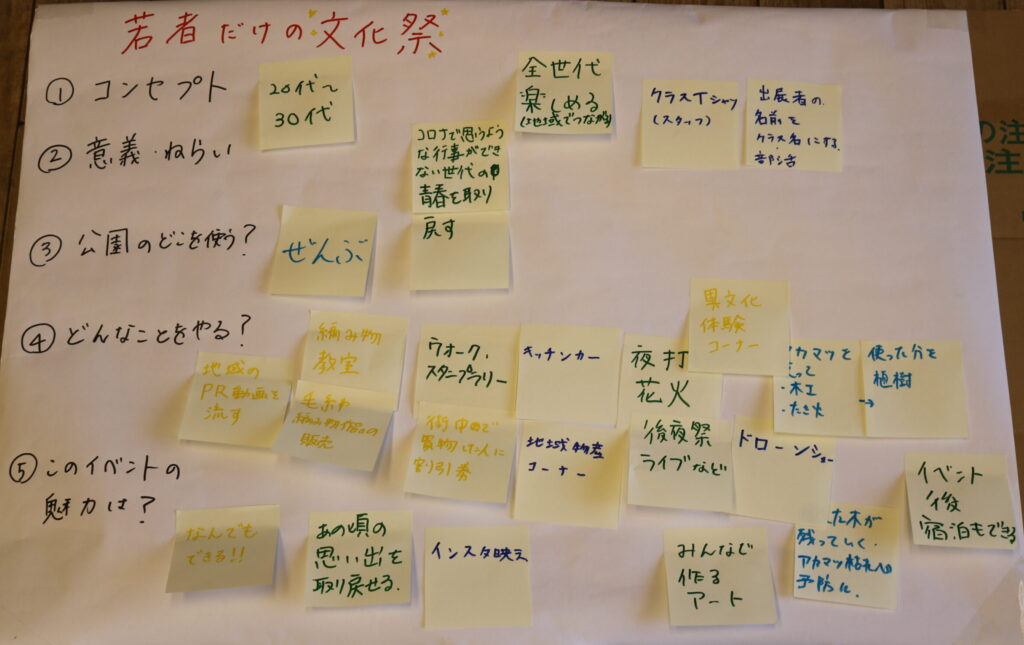 若者だけの文化祭
① コンセプト
20代〜
30代
全世代
楽しめる
(地域でつながり)
クラスTシャツ
(スタッフ)
出展者の
名前を
クラス名にする
部活
② 意義・ねらい
コロナで思うよう
な行事ができ
ない世代の
青春を取り
戻す
③ 公園のどこを使う?
ぜんぶ
④ どんなことをやる?
地域の
PR動画を
流す
編み物
教室
毛糸や
編み物
販売
ウオーク・
スタンプラリー
街中で
買物した人に
割引券
キッチンカー
地域物産
コーナー
夜打
花火
後夜祭
ライブなど
異文化
体験
コーナー
ドローンショー
アカマツを
使って
・木工
・たき火
→
使った分を
植樹
⑤ このイベントの
魅力は?
なんでも
できる!!
あの頃の
思い出を
取り戻せる.
インスタ映え
みんなで
作る
アート
た木が
残っていく.
アカマツ枯れの
予防に.
イベント
後
宿泊もできる
の注
注